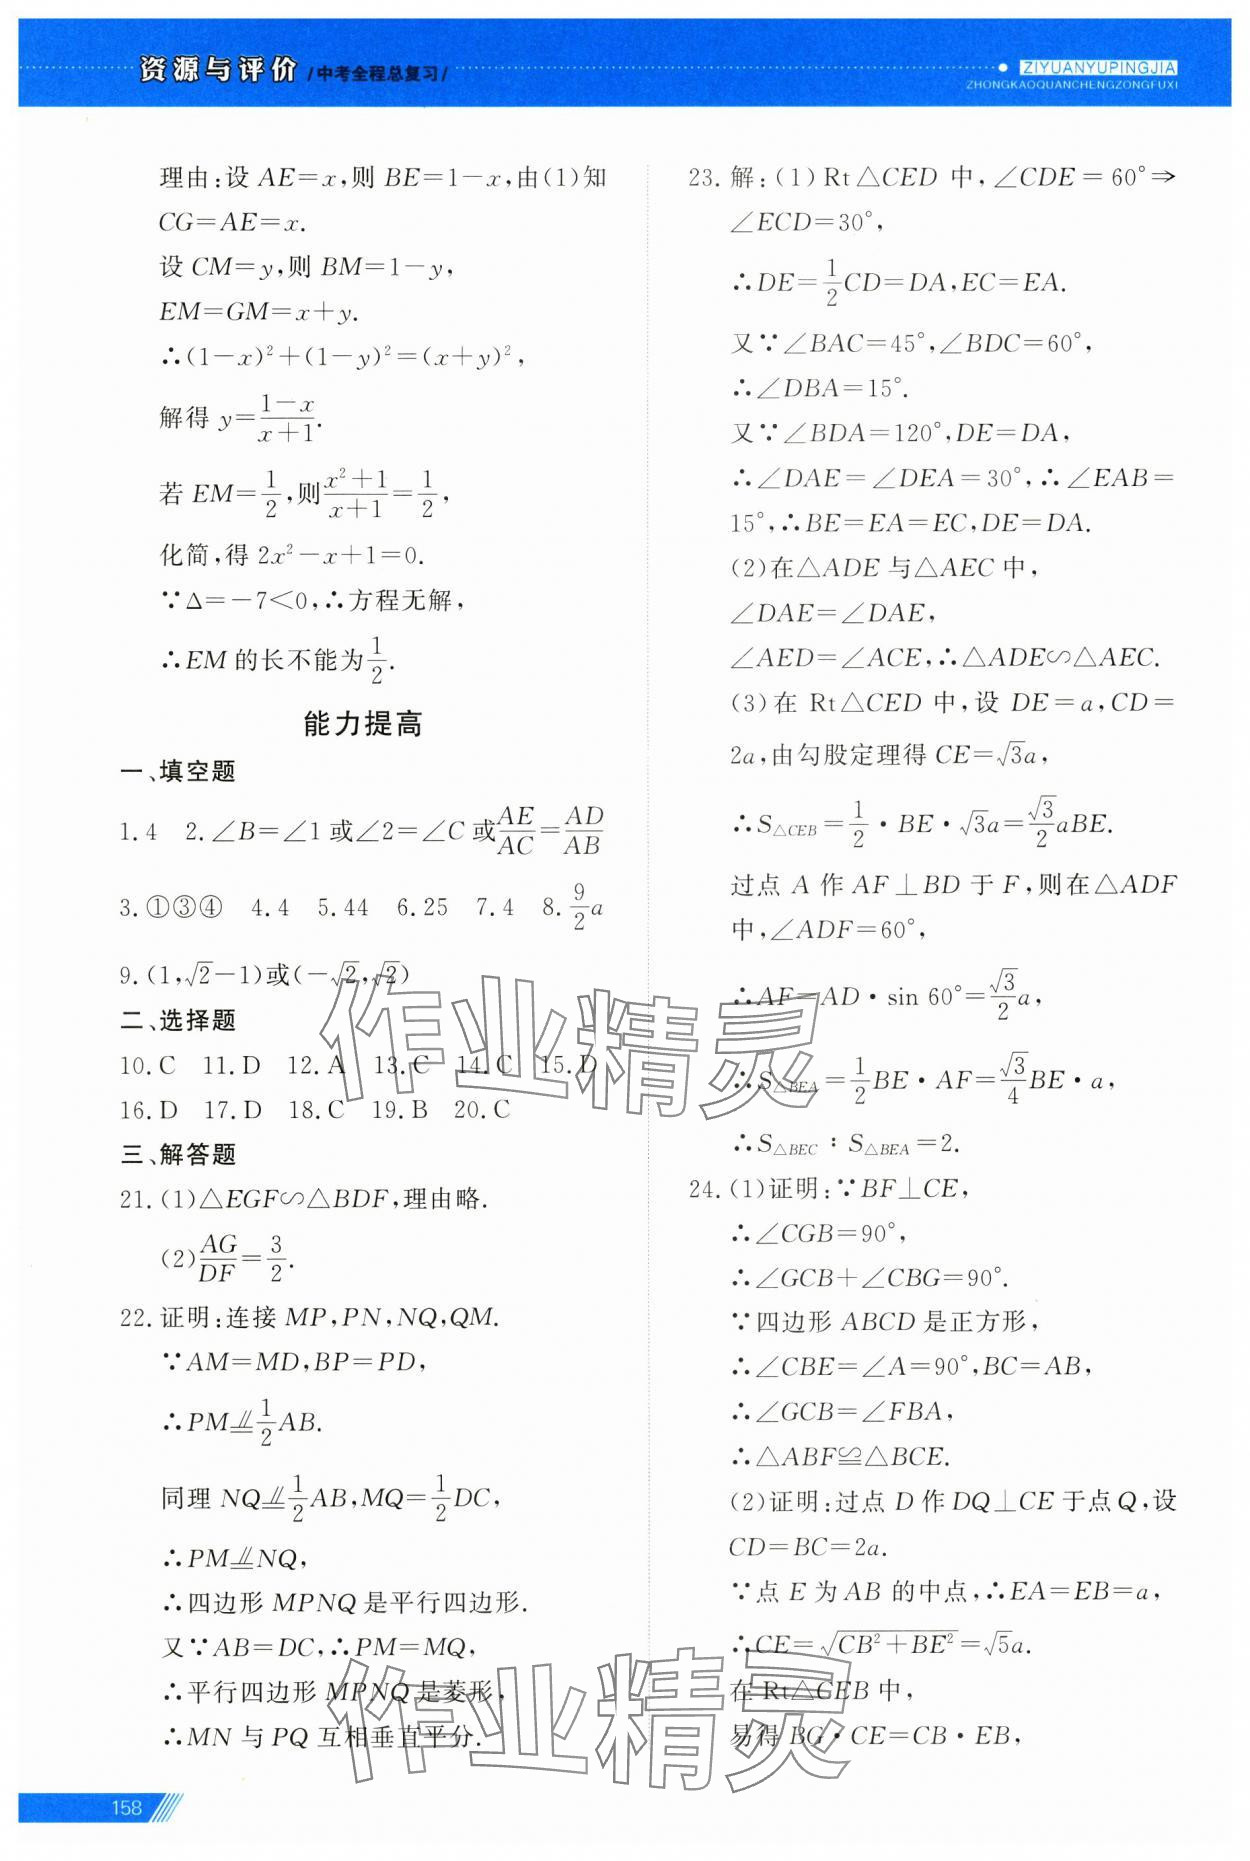 资源与评价 /中考全程总复习/
ZIYUANYUPINGJIA
ZHONGKAOQUANCHENGZONGFUXI
理由:设 AE=x,则 BE=1-x,由(1)知
CG=AE=x.
设 CM=y,则 BM=1-y,
EM=GM=x+y.
∴(1-x)²+(1-y)²=(x+y)²,
解得 y=\frac{1-x}{x+1}.
若 EM=\frac{1}{2},则\frac{x²+1}{x+1}=\frac{1}{2},
化简,得 2x²-x+1=0.
∵Δ=-7<0,∴方程无解,
∴EM 的长不能为\frac{1}{2}.
能力提高
一、填空题
1.4 2.∠B=∠1 或∠2=∠C 或\frac{AE}{AC}=\frac{AD}{AB}
3.①③④ 4.4 5.44 6.25 7.4 8.\frac{9}{2}a
9.(1,√2-1)或(-√2,√2)
二、选择题
10.C 11.D 12.A 13.C 14.C 15.D
16.D 17.D 18.C 19.B 20.C
三、解答题
21.(1)△EGF∽△BDF,理由略.
(2)\frac{AG}{DF}=\frac{3}{2}.
22.证明:连接 MP,PN,NQ,QM.
∵AM=MD,BP=PD,
∴PM⫽\frac{1}{2}AB.
同理 NQ⫽\frac{1}{2}AB,MQ=\frac{1}{2}DC,
∴PM⫽NQ,
∴四边形 MPNQ 是平行四边形.
又∵AB=DC,∴PM=MQ,
∴平行四边形 MPNQ 是菱形,
∴MN 与 PQ 互相垂直平分.
158
23.解:(1)Rt△CED 中,∠CDE=60°⇒
∠ECD=30°,
∴DE=\frac{1}{2}CD=DA,EC=EA.
又∵∠BAC=45°,∠BDC=60°,
∴∠DBA=15°.
又∵∠BDA=120°,DE=DA,
∴∠DAE=∠DEA=30°,∴∠EAB=
15°,∴BE=EA=EC,DE=DA.
(2)在△ADE 与△AEC 中,
∠DAE=∠DAE,
∠AED=∠ACE,∴△ADE∽△AEC.
(3)在 Rt△CED 中,设 DE=a,CD=
2a,由勾股定理得 CE=√3a,
∴S△CEB=\frac{1}{2}·BE·√3a=\frac{√3}{2}aBE.
过点 A 作 AF⊥BD 于 F,则在△ADF
中,∠ADF=60°,
∴AF=AD·sin 60°=\frac{√3}{2}a,
∴S△BEA=\frac{1}{2}BE·AF=\frac{√3}{4}BE·a,
∴S△BEC∶S△BEA=2.
24.(1)证明:∵BF⊥CE,
∴∠CGB=90°,
∴∠GCB+∠CBG=90°.
∵四边形 ABCD 是正方形,
∴∠CBE=∠A=90°,BC=AB,
∴∠GCB=∠FBA,
∴△ABF≌△BCE.
(2)证明:过点 D 作 DQ⊥CE 于点 Q,设
CD=BC=2a.
∵点 E 为 AB 的中点,∴EA=EB=a,
∴CE=√(CB²+BE²)=√5a.
在 Rt△CEB 中,
易得 BG·CE=CB·EB,
作业精灵
作业精灵